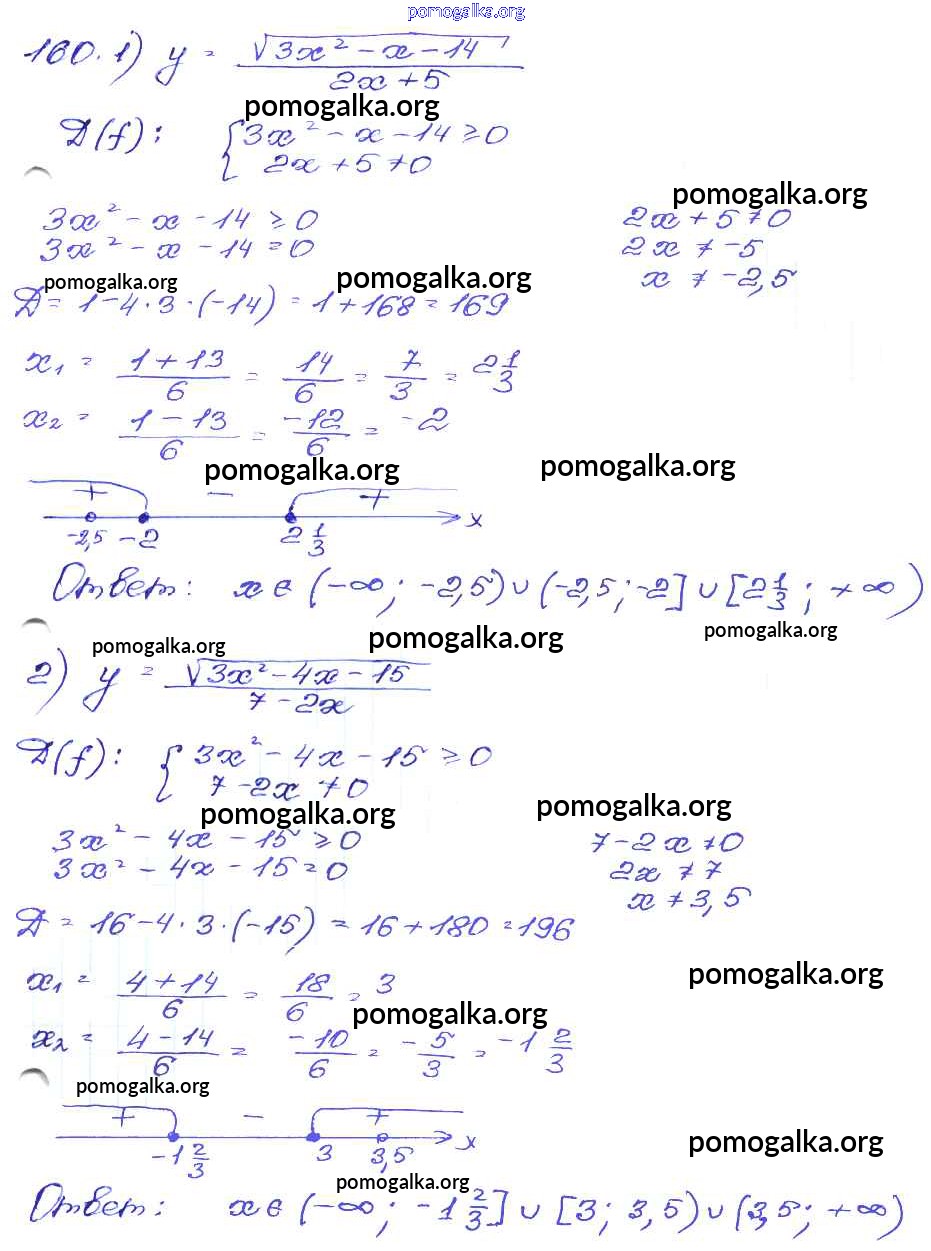 pomogalka.org
160. 1) y = √(3x² - x - 14) / (2x + 5)
pomogalka.org
D(f): { 3x² - x - 14 ≥ 0
2x + 5 ≠ 0
pomogalka.org
3x² - x - 14 ≥ 0 2x + 5 ≠ 0
3x² - x - 14 = 0 2x ≠ -5
pomogalka.org pomogalka.org x ≠ -2,5
D = 1 - 4 · 3 · (-14) = 1 + 168 = 169
x₁ = (1 + 13)/6 = 14/6 = 7/3 = 2 1/3
x₂ = (1 - 13)/6 = -12/6 = -2
pomogalka.org pomogalka.org
+ - +
-2,5 -2 2 1/3 x
Ответ: x ∈ (-∞; -2,5) ∪ (-2,5; -2] ∪ [2 1/3; +∞)
pomogalka.org pomogalka.org pomogalka.org
2) y = √(3x² - 4x - 15) / (7 - 2x)
D(f): { 3x² - 4x - 15 ≥ 0
7 - 2x ≠ 0
pomogalka.org pomogalka.org
3x² - 4x - 15 ≥ 0 7 - 2x ≠ 0
3x² - 4x - 15 = 0 2x ≠ 7
x ≠ 3,5
D = 16 - 4 · 3 · (-15) = 16 + 180 = 196
pomogalka.org
x₁ = (4 + 14)/6 = 18/6 = 3
pomogalka.org
x₂ = (4 - 14)/6 = -10/6 = -5/3 = -1 2/3
pomogalka.org
+ - +
-1 2/3 3 3,5 x
pomogalka.org
pomogalka.org
Ответ: x ∈ (-∞; -1 2/3] ∪ [3; 3,5) ∪ (3,5; +∞)